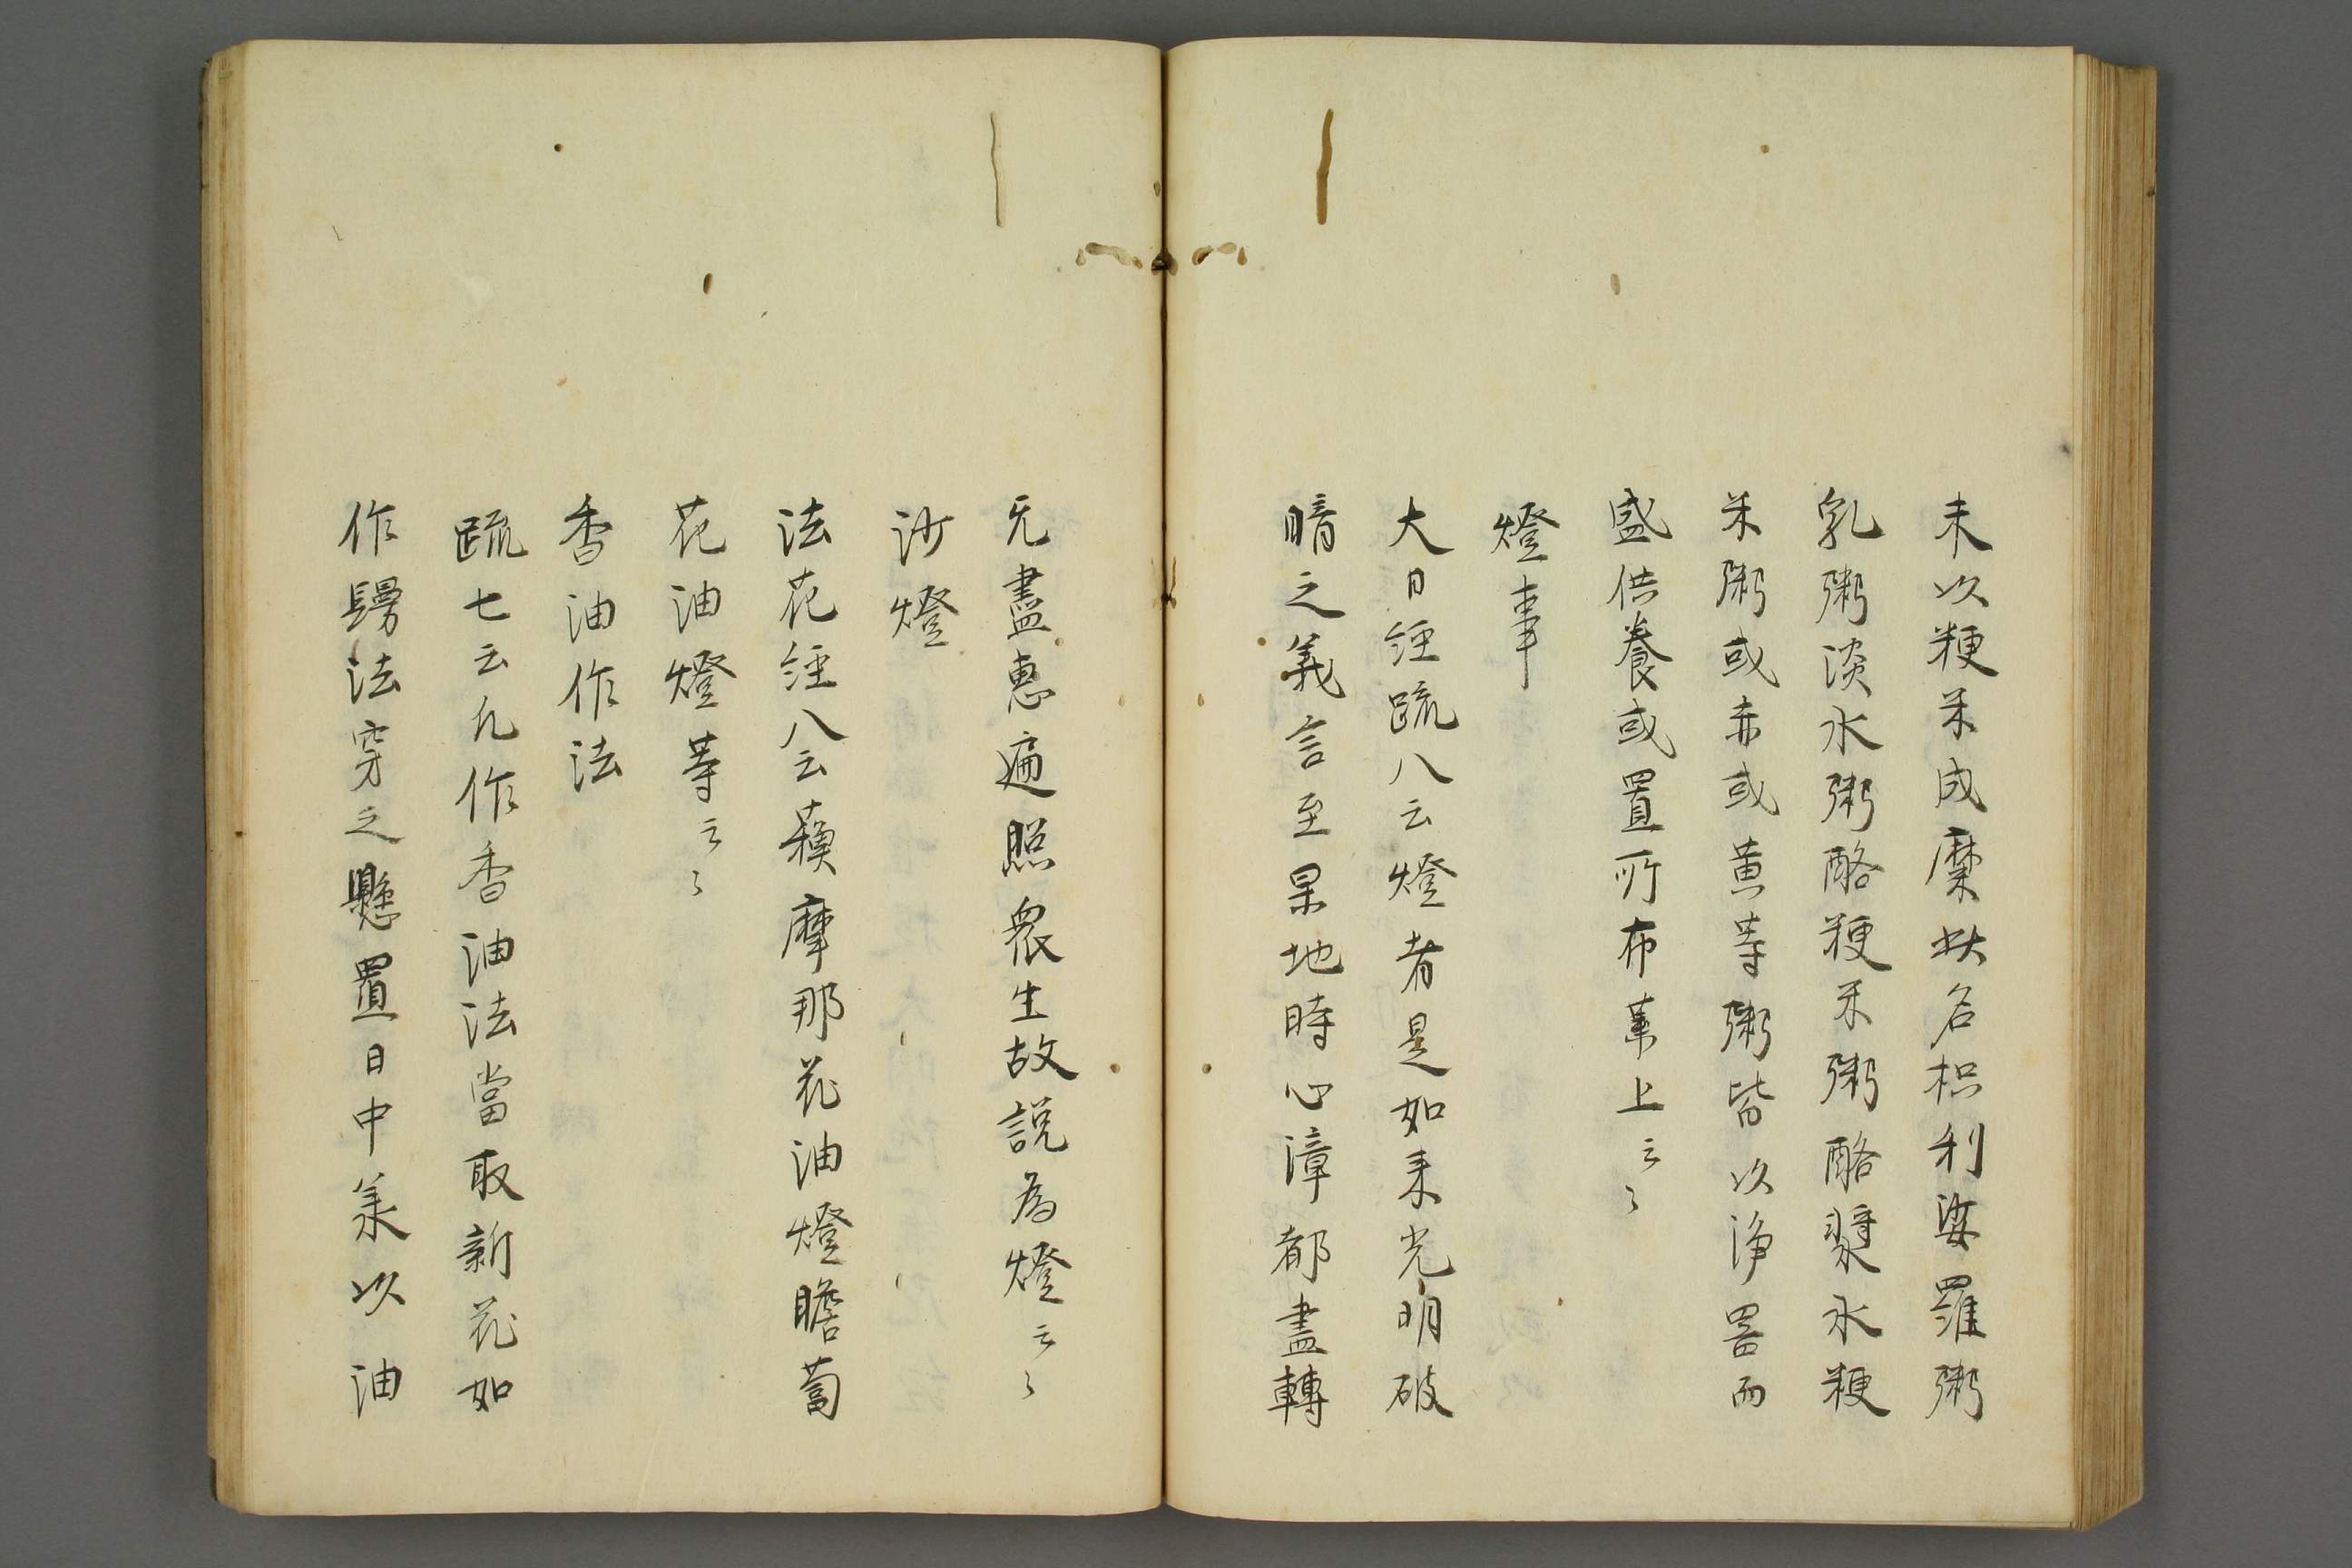 末以粳米成糜状名枳利娑羅粥
乳粥淡水粥酪粳米粥酪漿水粳
米粥或赤或黄等粥皆以浄器而
盛供養或置所布葉上云々
燈事
大日経疏八云燈者是如来光明破
暗之義言至果地時心漳都盡轉
无盡恵遍照衆生故説為燈云々
沙燈
法花経八云蘓摩那花油燈瞻蔔
花油燈等云々
香油作法
疏七云凡作香油法當取新花如
作鬘法穿之懸置日中羕以油